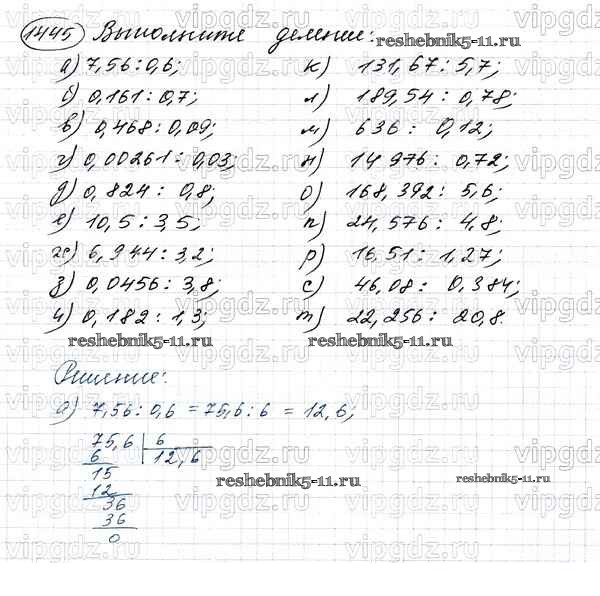 1445 Выполните деление:
reshebnik5-11.ru
а) 7,56 : 0,6; к) 131,67 : 5,7;
б) 0,161 : 0,7; л) 189,54 : 0,78;
в) 0,468 : 0,09; м) 636 : 0,12;
г) 0,00261 : 0,03; н) 14 976 : 0,72;
д) 0,824 : 0,8; о) 168,392 : 5,6;
е) 10,5 : 3,5; п) 24,576 : 4,8;
ж) 6,944 : 3,2; р) 16,51 : 1,27;
з) 0,0456 : 3,8; с) 46,08 : 0,384;
и) 0,182 : 1,3; т) 22,256 : 20,8.
reshebnik5-11.ru reshebnik5-11.ru
Решение:
а) 7,56 : 0,6 = 75,6 : 6 = 12,6;
75,6 6
6 12,6
15
12
36
36
0
reshebnik5-11.ru reshebnik5-11.ru
vipgdz.ru